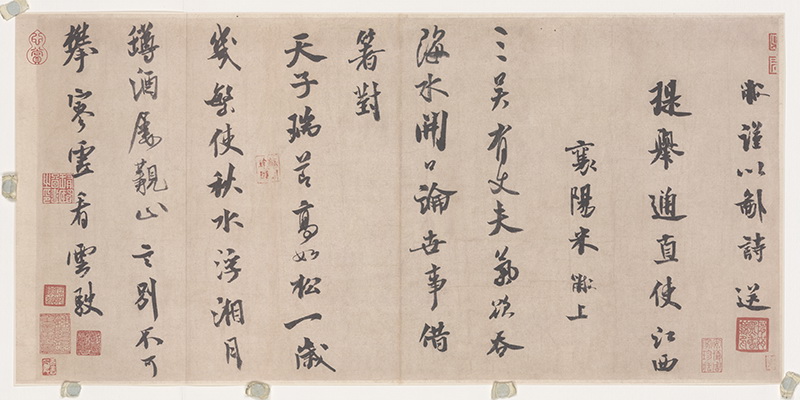 黻謹以鄙詩送
提舉通直使江西
襄陽米黻上
三吳有丈夫氣欲吞
海水開口論世事借
箸對
天子瑞節高如松一歲
幾繁使秋水浮湘月
罇酒屢觀山言別不可
攀看雲駛